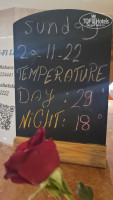 Sunday
20-11-22
TEMPERATURE
DAY: 29°
NIGHT: 18°
TopHotels